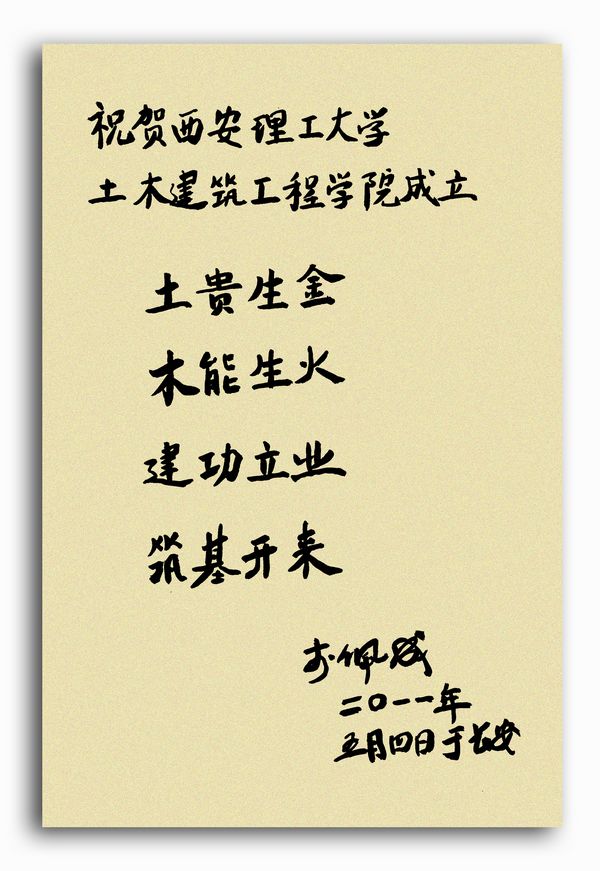 祝贺西安理工大学
土木建筑工程学院成立
土貴生金
木能生火
建功立业
筑基开来
佩斌
二〇一一年
五月四日于长安